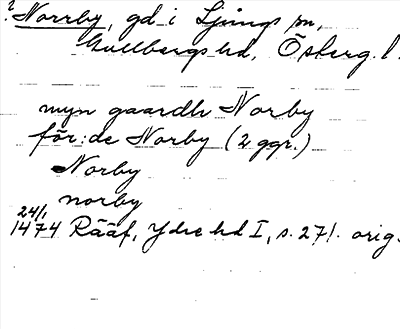 ? Norrby, gd i Ljungs sn,
Gullbergs hd, Österg. l.
myn gaardh Norby
för:de Norby (2 ggr.)
Norby
norby
24/1
1474 Rääf, Ydre hd I, s. 271. orig.